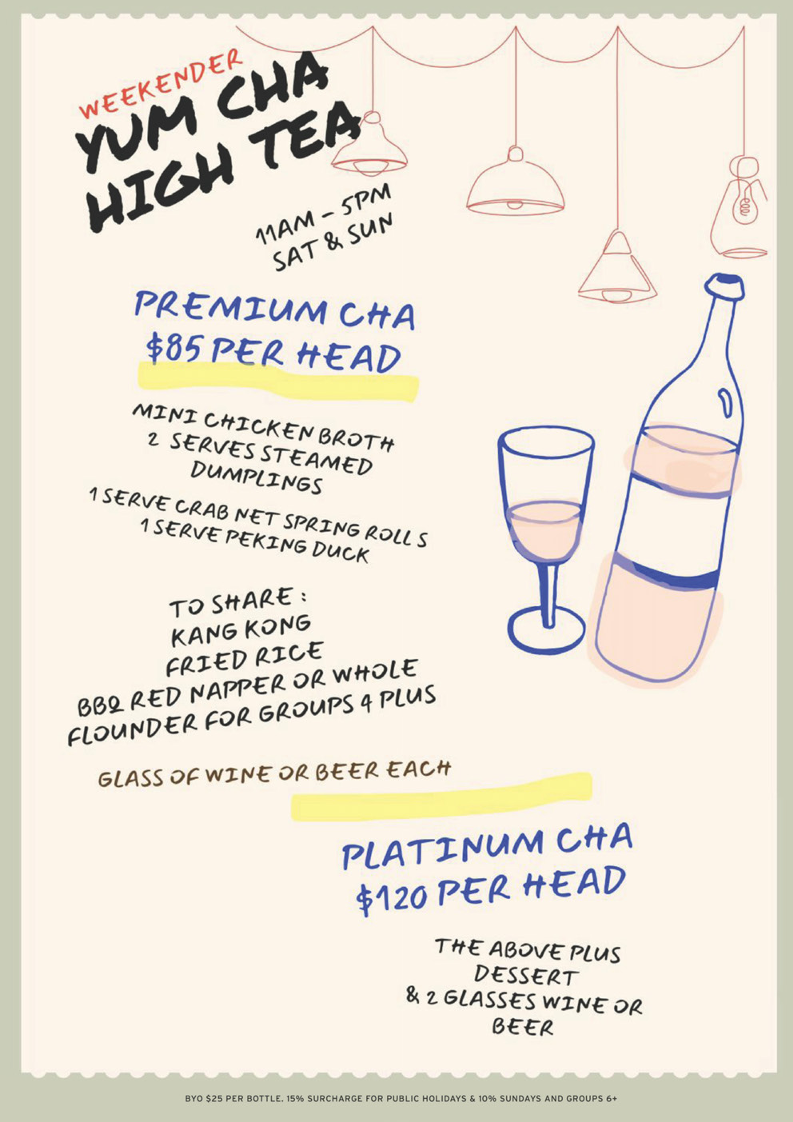 WEEKENDER
YUM CHA
HIGH TEA
11AM – 5PM
SAT & SUN
PREMIUM CHA
$85 PER HEAD
MINI CHICKEN BROTH
2 SERVES STEAMED
DUMPLINGS
1 SERVE CRAB NET SPRING ROLLS
1 SERVE PEKING DUCK
TO SHARE :
KANG KONG
FRIED RICE
BBQ RED NAPPER OR WHOLE
FLOUNDER FOR GROUPS 4 PLUS
GLASS OF WINE OR BEER EACH
PLATINUM CHA
$120 PER HEAD
THE ABOVE PLUS
DESSERT
& 2 GLASSES WINE OR
BEER
BYO $25 PER BOTTLE. 15% SURCHARGE FOR PUBLIC HOLIDAYS & 10% SUNDAYS AND GROUPS 6+